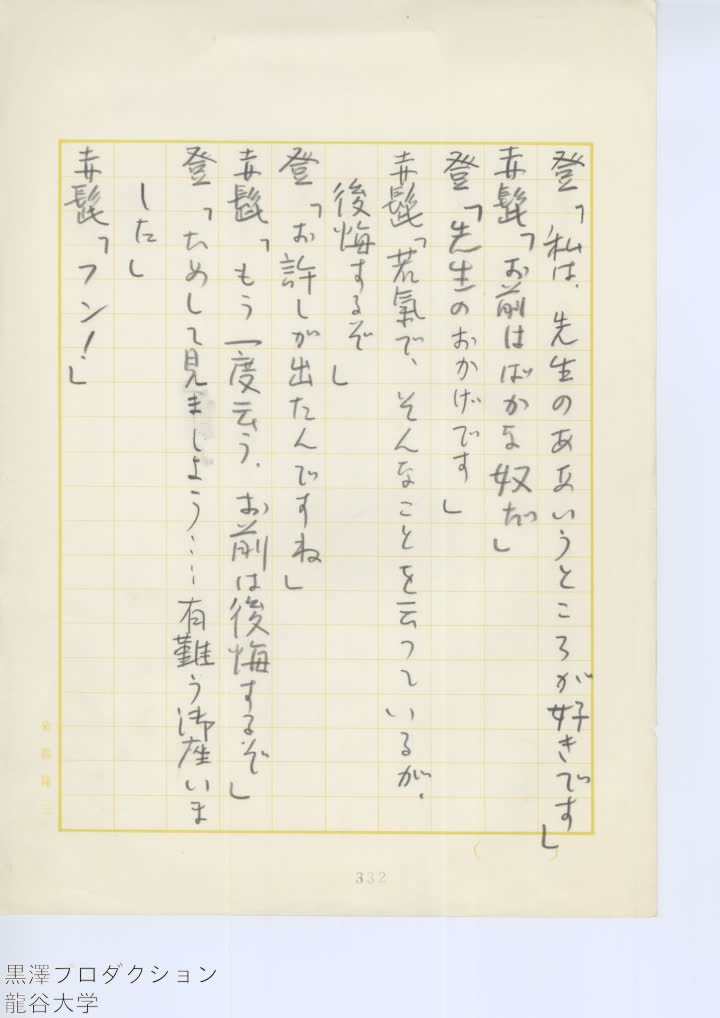 登「私は、先生のああいうところが好きです」
赤髭「お前はばかな奴だ」
登「先生のおかげです」
赤髭「若氣で、そんなことを云っているが、
後悔するぞ」
登「お許しが出たんですね」
赤髭「もう一度云う、お前は後悔するぞ」
登「ためして見ましよう……有難う御座いま
した」
赤髭「フン!」
332
黒澤プロダクション
龍谷大学